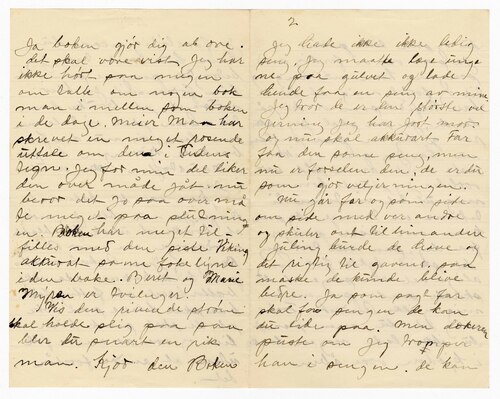 Ja boken gjör dig ab ore.
det skal vore vist Jeg har
ikke hört paa nogen
om talle om nogen bok
man i mellem som boken
i de dage. Meier Mon har
skrevet en meget rosende
uttale om den i Tidens
Tegn. Jeg for min del liker
den over maade gåt. nu
beror det jo paa over må
te meget paa slutning
en. Boken har meget til
felles med den siste Viking
akkurat somme foke lyne
i den bake. Berit og Marie
Myren er tvilinger.
Vis den rivende ström
skal holde slig paa saa
blir du snart en rik
man. Kjöd den Boken
2
Jeg hade ikke ikke ledig
seng. Jeg maatte lage unge
ne paa gulvet og lade
hende faa en seng av mine
Jeg tror de er den störste vel
gjerning Jeg har gort mor.
og nu skal akkurat Far
faa den samme seng, men
nu er forselen den, de er du
som gjör veljerningen.
Nu går far og mor side
om side med ver andre
og skuler ont til hin andere
Juling burde de have og
det rigtig til gavens, saa
maske de kunde blive
bedre. Ja som sagt far
skal faa sengen de kan
du lide paa. Men dokteren
puste om Jeg trop per
han i sengen. de kan